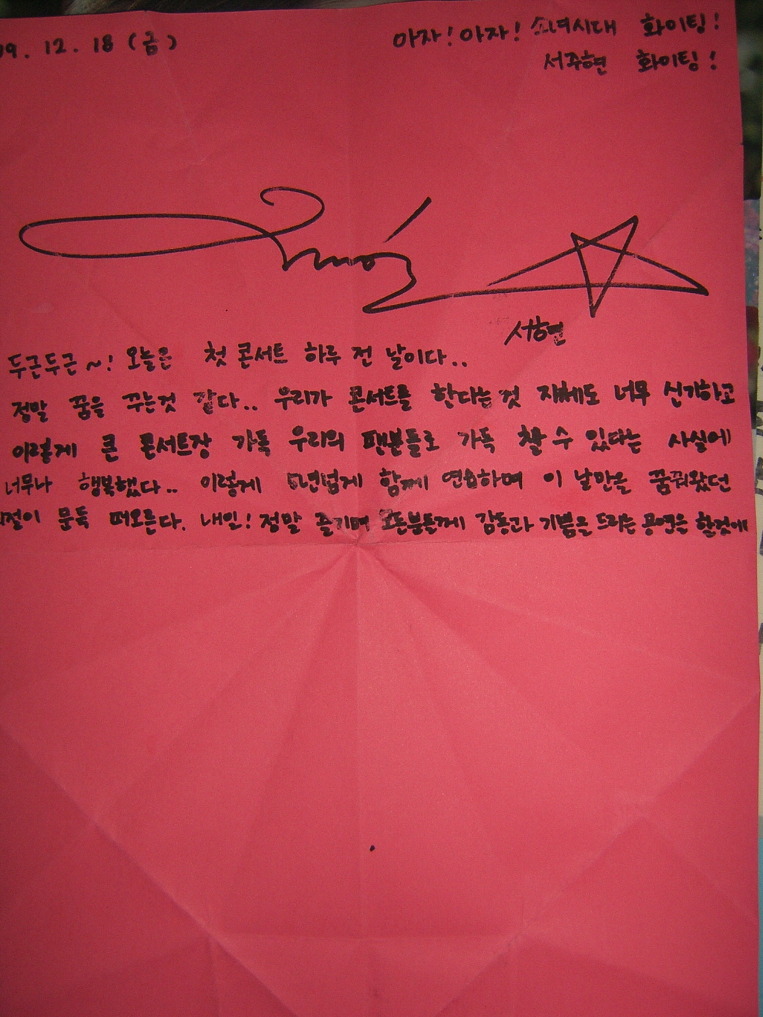 09. 12. 18 (금)
아자! 아자! 소녀시대 화이팅!
서주현 화이팅!
서현
두근두근~! 오늘은 첫 콘서트 하루 전 날이다..
정말 꿈을 꾸는것 같다.. 우리가 콘서트를 한다는것 자체도 너무 신기하고
이렇게 큰 콘서트장 가득 우리의 팬분들로 가득 찰 수 있다는 사실에
너무나 행복했다.. 이렇게 5년넘게 함께 연습하며 이 날만을 꿈꿔왔던
문득 떠오른다. 내일! 정말 즐기며 모든분들께 감동과 기쁨을 드리는 공연을 할것에